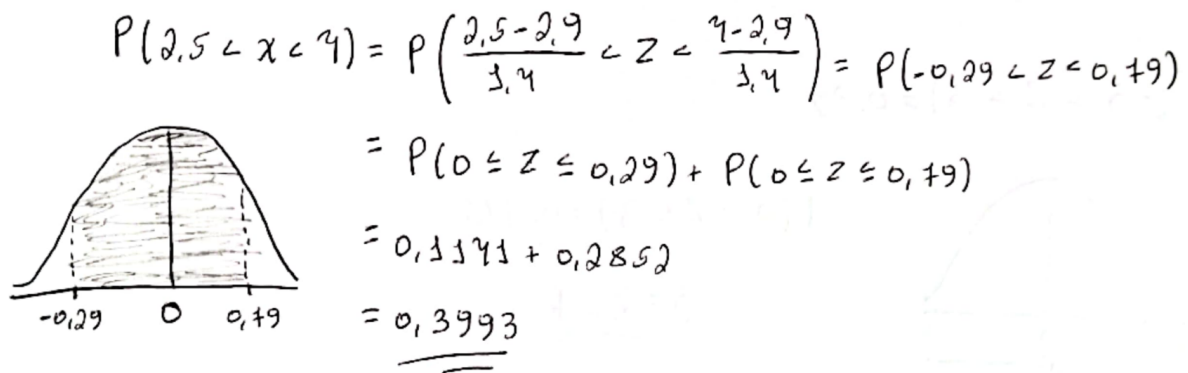 P(2,5 < x < 4) = P( (2,5-2,9)/1,4 < Z < (4-2,9)/1,4 ) = P(-0,29 < Z < 0,79)
= P(0 ≤ Z ≤ 0,29) + P(0 ≤ Z ≤ 0,79)
= 0,1141 + 0,2852
= 0,3993
-0,29 0 0,79